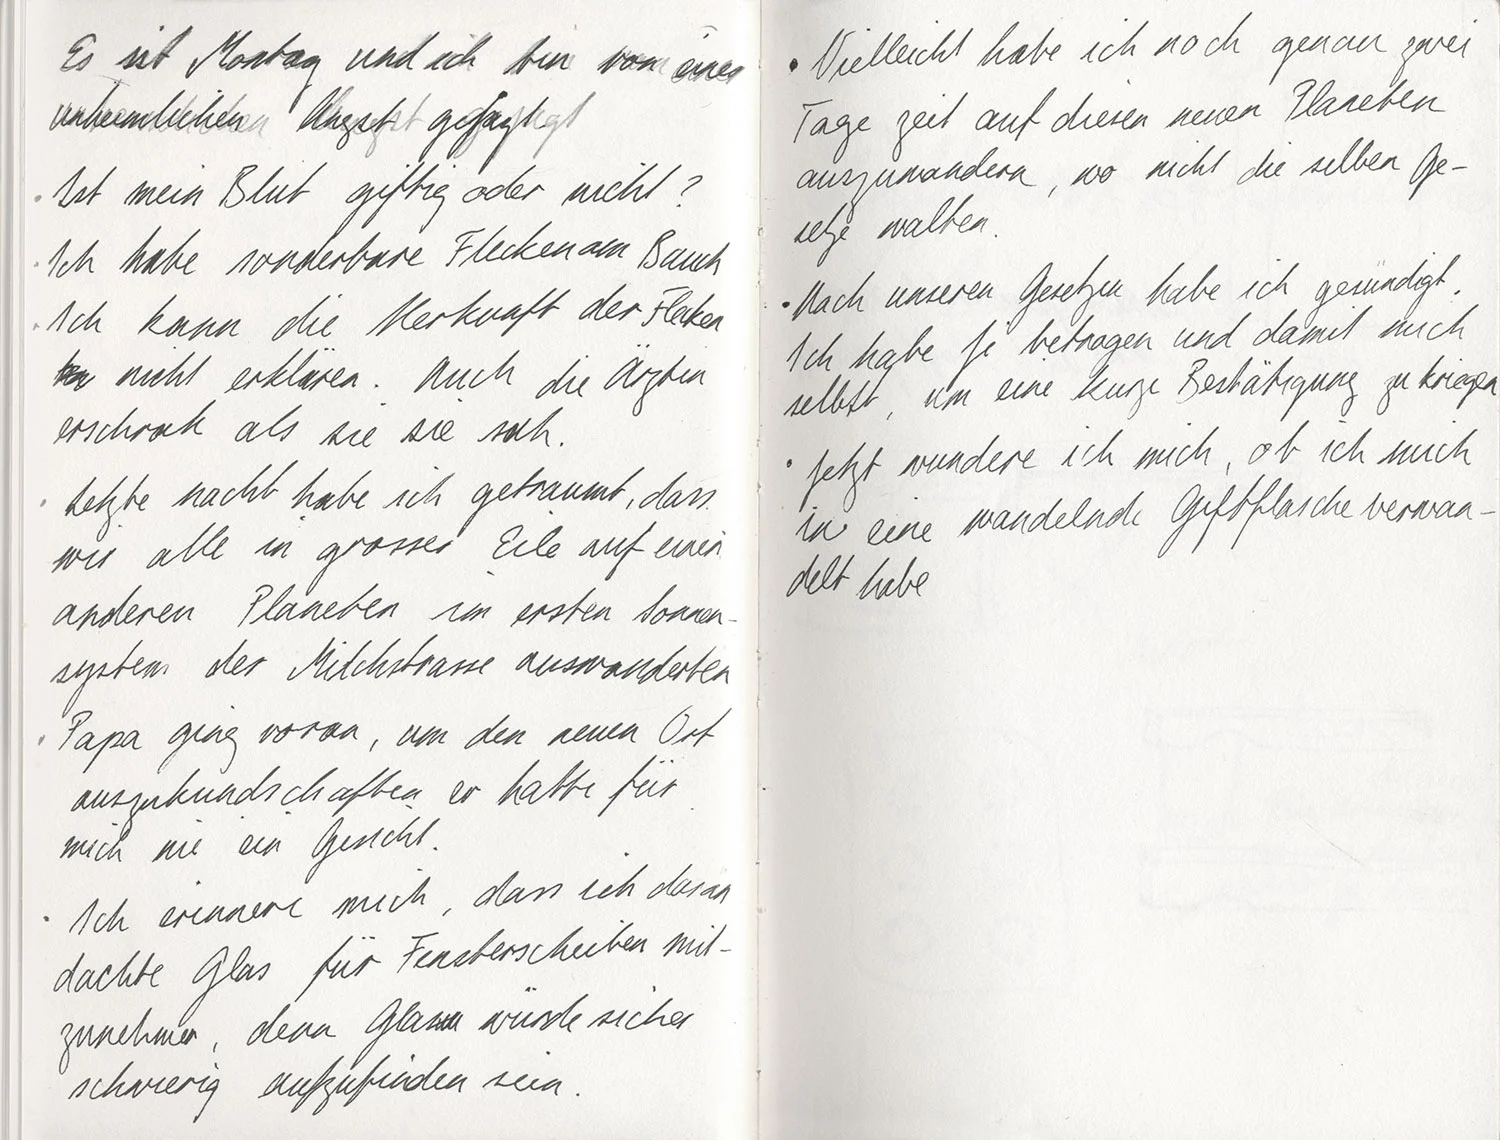 Es ist Montag und ich bin von einer
unheimlichen Angst geplagt
· Ist mein Blut giftig oder nicht?
· Ich habe sonderbare Flecken am Bauch
· Ich kann die Herkunft der Flecken
nicht erklären. Auch die Ärztin
erschrak als sie sie sah.
· Letzte nacht habe ich geträumt, dass
wir alle in grosser Eile auf einen
anderen Planeten im ersten Sonnen-
system der Milchstrasse auswanderten
· Papa ging voran, um den neuen Ort
auszukundschaften er hatte für
mich nie ein Gesicht.
· Ich erinnere mich, dass ich daran
dachte Glas für Fensterscheiben mit-
zunehmen, denn Glas würde sicher
schwierig aufzufinden sein.
· Vielleicht habe ich noch genau zwei
Tage zeit auf diesen neuen Planeten
auszuwandern, wo nicht die selben Ge-
setze walten.
· Nach unseren Gesetzen habe ich gesündigt.
Ich habe betrogen und damit mich
selbst, um eine kurze Bestätigung zu kriegen
· Jetzt wundere ich mich, ob ich mich
in eine wandelnde Giftflasche verwan-
delt habe